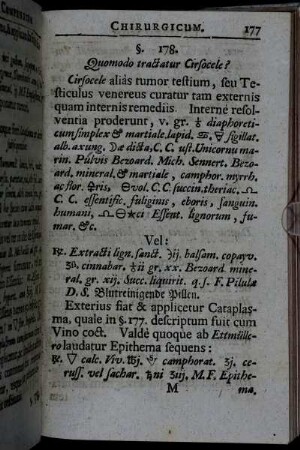 CHIRURGICUM. 177
§. 178.
Quomodo tractatur Cirsocele?
Cirsocele aliàs tumor testium, seu Te-
sticulus venereus curatur tam externis
quam internis remediis. Internè resol-
ventia proderunt, v. gr. ♁ diaphoreti-
cum simplex & martiale, lapid. ♋, 🜃 sigillat.
alb. axung. dicta, C. C. ust. Unicornu ma-
rin. Pulvis Bezoard. Mich. Sennert. Bezo-
ard, mineral, & martiale, camphor. myrrh.
ac flor. 🜍ris, vol. C. C. succin. theriac,
C. C. essentific. fuliginis, eboris, sanguin.
humani, Essent. lignorum, fu-
mar. &c.
Vel:
℞. Extracti lign. sanct. ℈ij. balsam. copayv.
cinnabar. ♁ii gr. xx. Bezoard. mine-
ral. gr. xij. Succ. liquirit. q. s. F. Pilulæ
D. S. Blutreinigende Pillen.
Exterius fiat & applicetur Cataplas-
ma, quale in §. 177. descriptum fuit cum
Vino coct. Valdè quoque ab Ettmülle-
ro laudatur Epithema sequens:
℞. calc. viv. ℔j. camphorat. ℥j. ce-
russ. vel sachar. ♄ni ʒij. M. F. Epithe-
M ma,